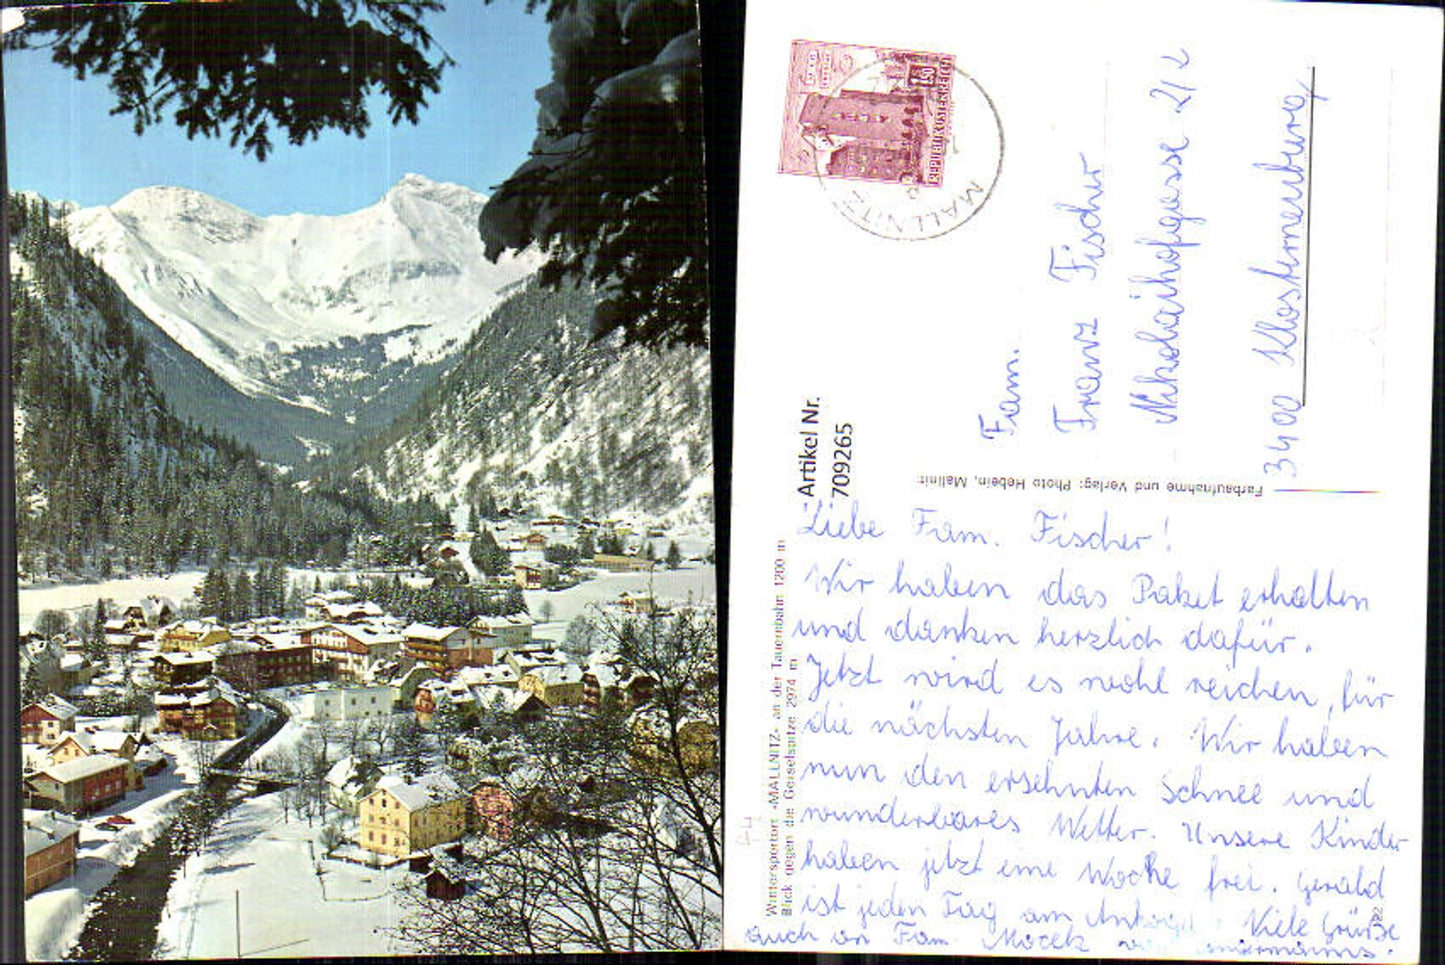 REPUBLIK ÖSTERREICH
1.50
MALLNITZ
Fam.
Franz Fischer
Nikolaihofgasse 212
3400 Klosterneuburg
Artikel Nr.
709265
Farbaufnahme und Verlag: Photo Hebein, Mallnitz
Wintersportort »MALLNITZ« an der Tauernbahn 1200 m
Blick gegen die Geiselspitze 2974 m
Liebe Fam. Fischer!
Wir haben das Paket erhalten
und danken herzlich dafür.
Jetzt wird es wohl reichen, für
die nächsten Jahre. Wir haben
nun den ersehnten Schnee und
wunderbares Wetter. Unsere Kinder
haben jetzt eine Woche frei. Gerald
ist jeden Tag am Ankogel. Viele Grüße
auch an Fam.